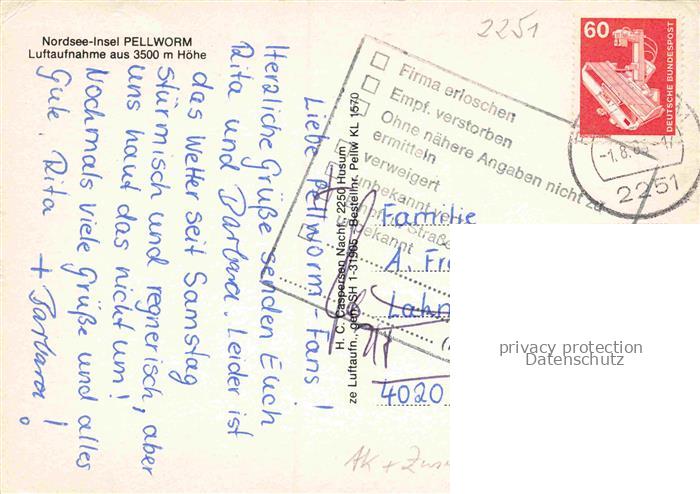 Nordsee-Insel PELLWORM
Luftaufnahme aus 3500 m Höhe
Liebe Pellworm-Fans!
Herzliche Grüße senden Euch
Rita und Barbara. Leider ist
das Wetter seit Samstag
stürmisch und regnerisch, aber
uns haut das nicht um!
Nochmals viele Grüße und alles
Gute. Rita
+ Barbara!
H. C. Caspersen Nachf., 2250 Husum
ze Luftaufn., gen. SH 1-31965 – Bestellnr. Pellw KL 1570
2251
60
DEUTSCHE BUNDESPOST
-1.8.
2251
Firma erloschen
Empf. verstorben
Ohne nähere Angaben nicht zu
ermitteln
verweigert
unbekannt
Straße
unbekannt
Familie
A. Fr
Lahn
4020
AK + Zus
privacy protection
Datenschutz